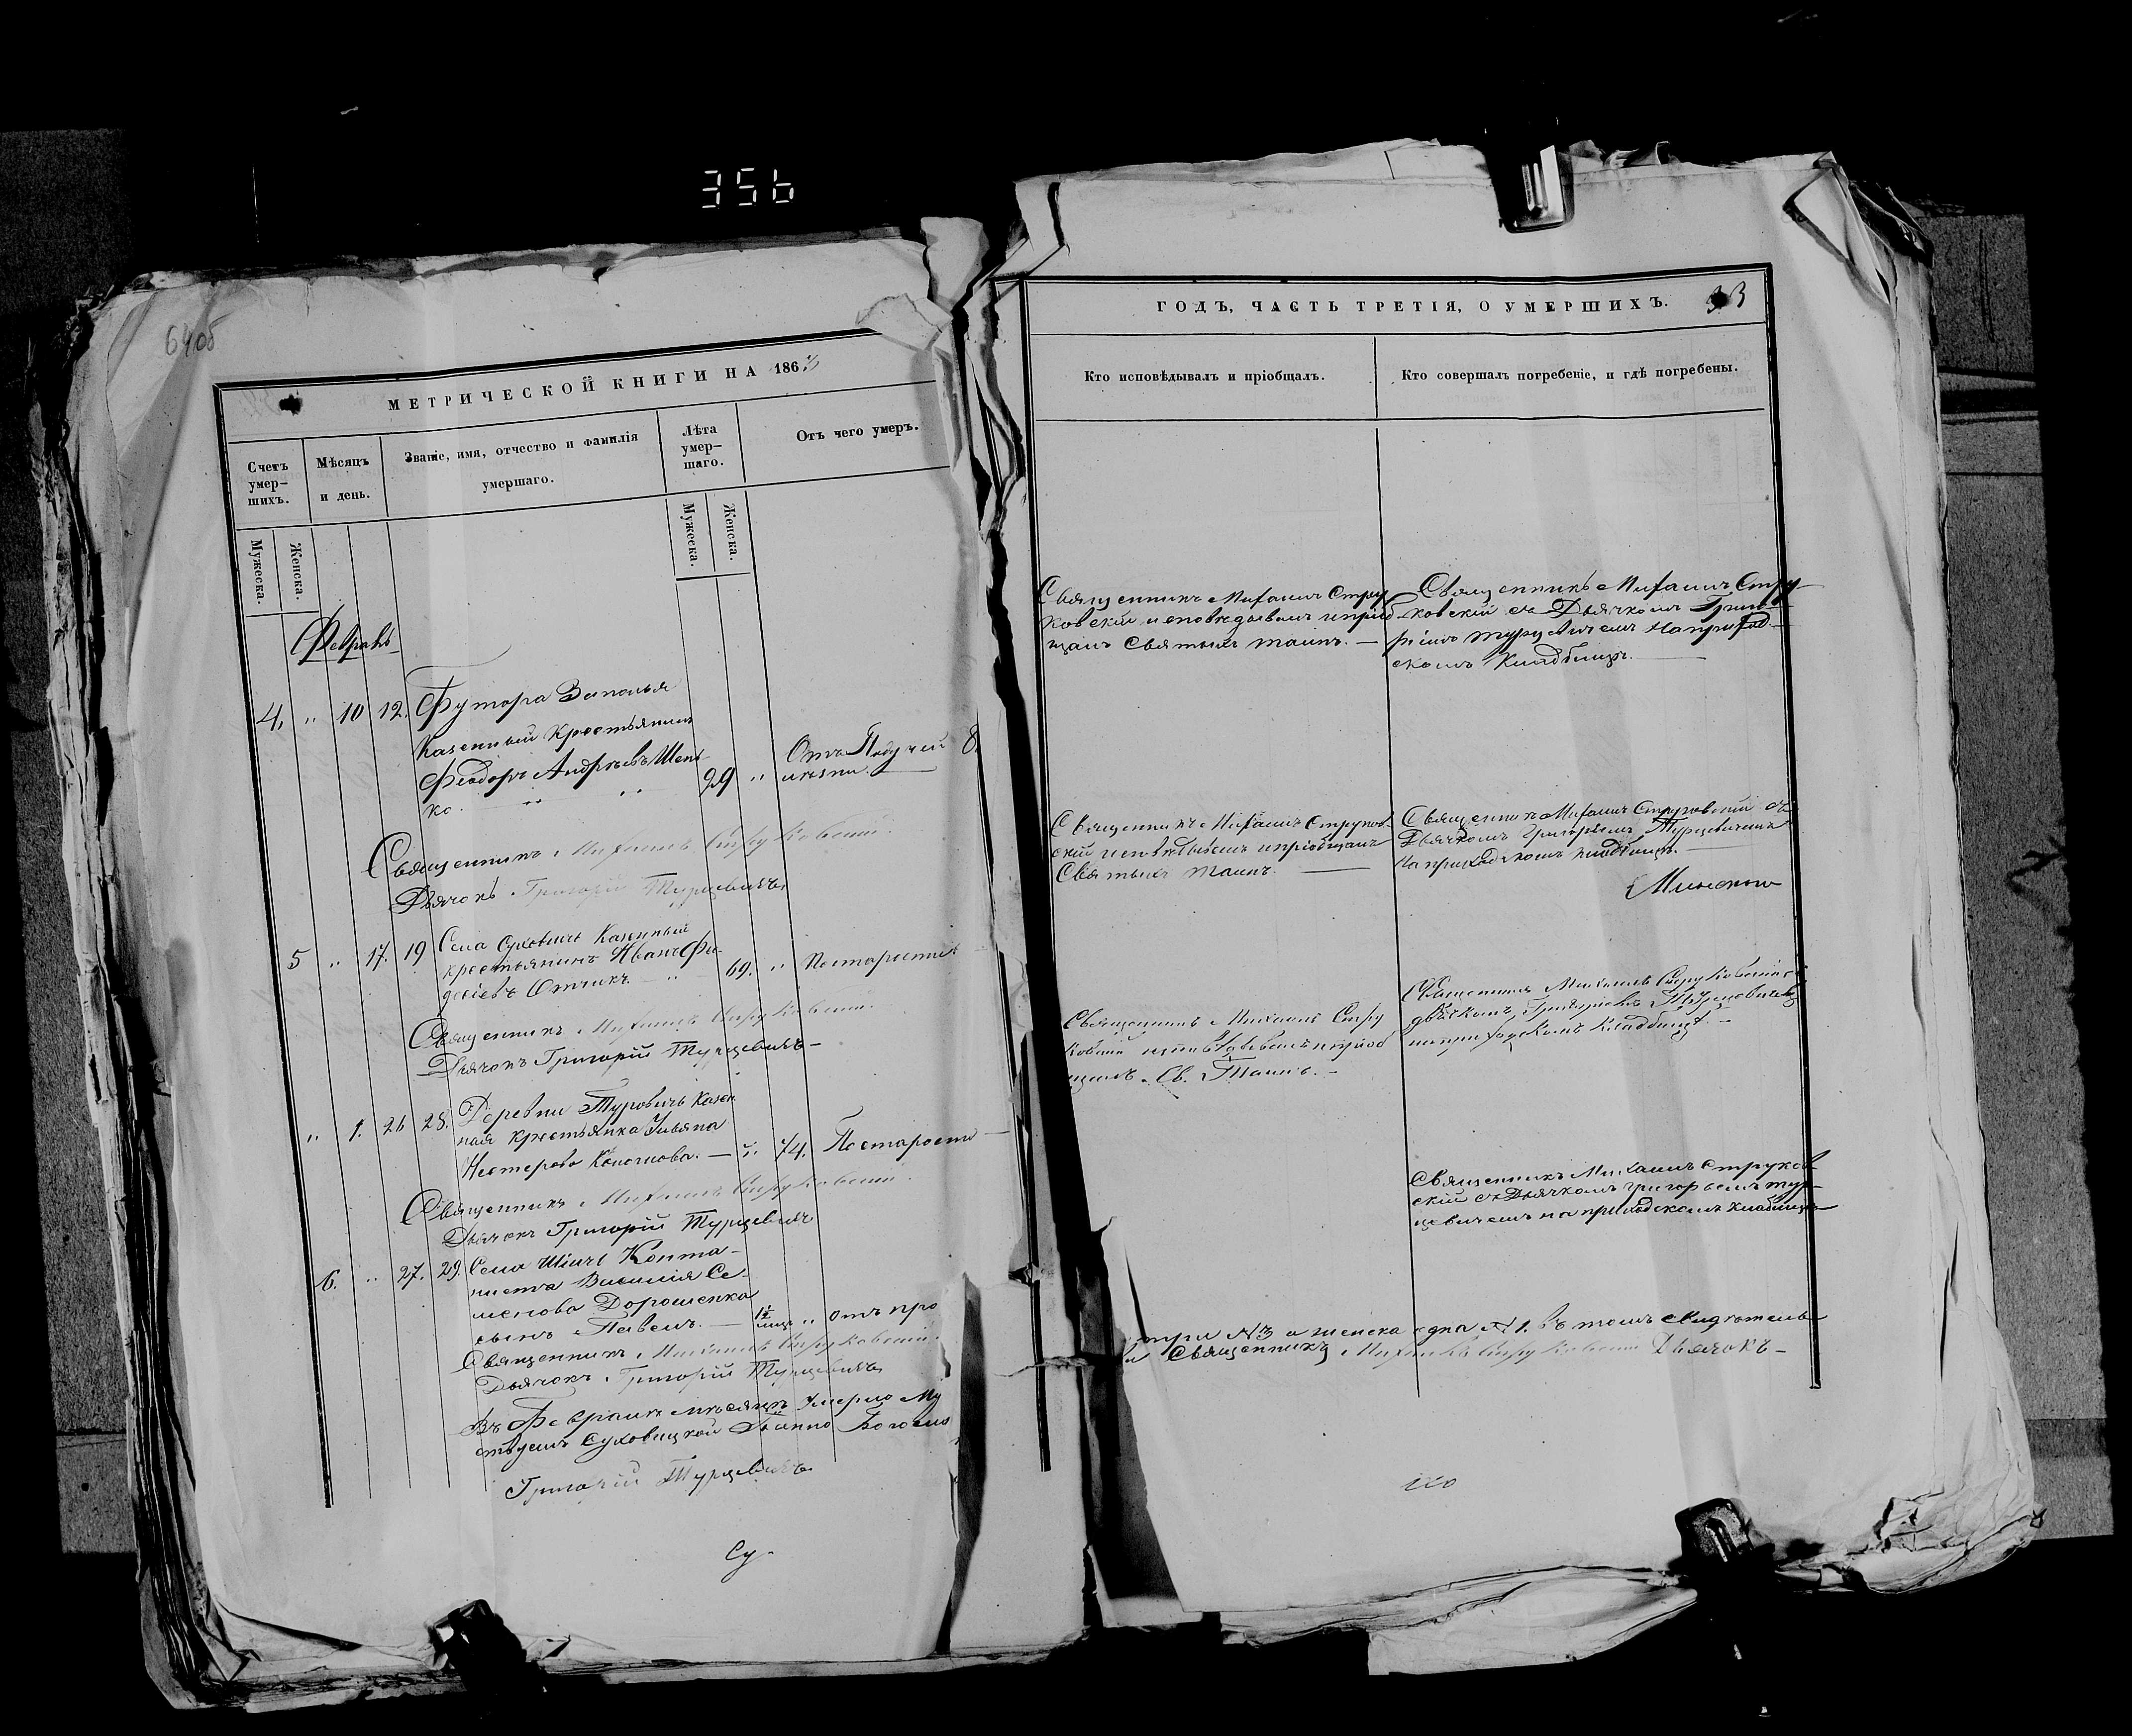 356
64об
МЕТРИЧЕСКОЙ КНИГИ НА 1863
Счетъ умер-шихъ.
Мѣсяцъ и день.
Званіе, имя, отчество и фамилія умершаго.
Лѣта умер-шаго.
Отъ чего умеръ.
Мужеска.
Женска.
Мужеска.
Женска.
Февраль
4. " 10 12. Футора Заполья
Казенный Крестьянинъ
Феодоръ Андреевъ Шев-
ко. " " 29 " Отъ Падучей
Священникъ Михаилъ Струковскій.
Дьячокъ Григорій Турцевичъ
5 " 17. 19 Села Суховичъ Казенный
крестьянинъ Иванъ
69. " По старости
Священникъ Михаилъ Струковскій
Дьячокъ Григорій Турцевичъ
" 1. 26 28. Деревни Туровичъ Казен
ная крестьянка Ульяна
Нестерова — " 74. По старости
Священникъ Михаилъ Струковскій.
Дьячокъ Григорій Турцевичъ
6. " 27. 29. Села
Василія Се-
менова Дорошенка
сынъ Павелъ. — " отъ
Священникъ Михаилъ Струковскій.
Дьячокъ Григорій Турцевичъ
Въ Февралѣ мѣсяцѣ умерло Му
Суховицкой
Григорій Турцевичъ
Су-
ГОДЪ, ЧАСТЬ ТРЕТІЯ, О УМЕРШИХЪ.
33
Кто исповѣдывалъ и пріобщалъ.
Кто совершалъ погребеніе, и гдѣ погребены.
Священникъ Михаилъ Стру
ковскій исповедывалъ и пріоб
щалъ Святыхъ таинъ. —
Священникъ Михаилъ Стру-
ковскій съ Дьячкомъ Григо-
ріемъ Турцевичемъ На приход-
скомъ Кладбищѣ.
Священникъ Михаилъ Струков-
скій исповедывалъ и пріобщалъ
Святыхъ таинъ. —
Священникъ Михаилъ Струковскій съ
Дьячкомъ Григорьемъ Турцевичемъ
На приходскомъ кладбищѣ.
Священникъ Михаилъ Стру
ковскій исповѣдывалъ и пріоб
щалъ Св. Таинъ. —
Священникъ Михаилъ Струковскій съ
дьячкомъ Григоріемъ Турцевичемъ
на приходскомъ Кладбищѣ. —
Священникъ Михаилъ Струков
скій съ Дьячкомъ Григорьемъ Тур-
цевичемъ на приходскомъ кладбищѣ
три №3 а женска одна №1. Въ томъ свидѣтель
Священникъ Михаилъ Струковскій Дьячокъ —